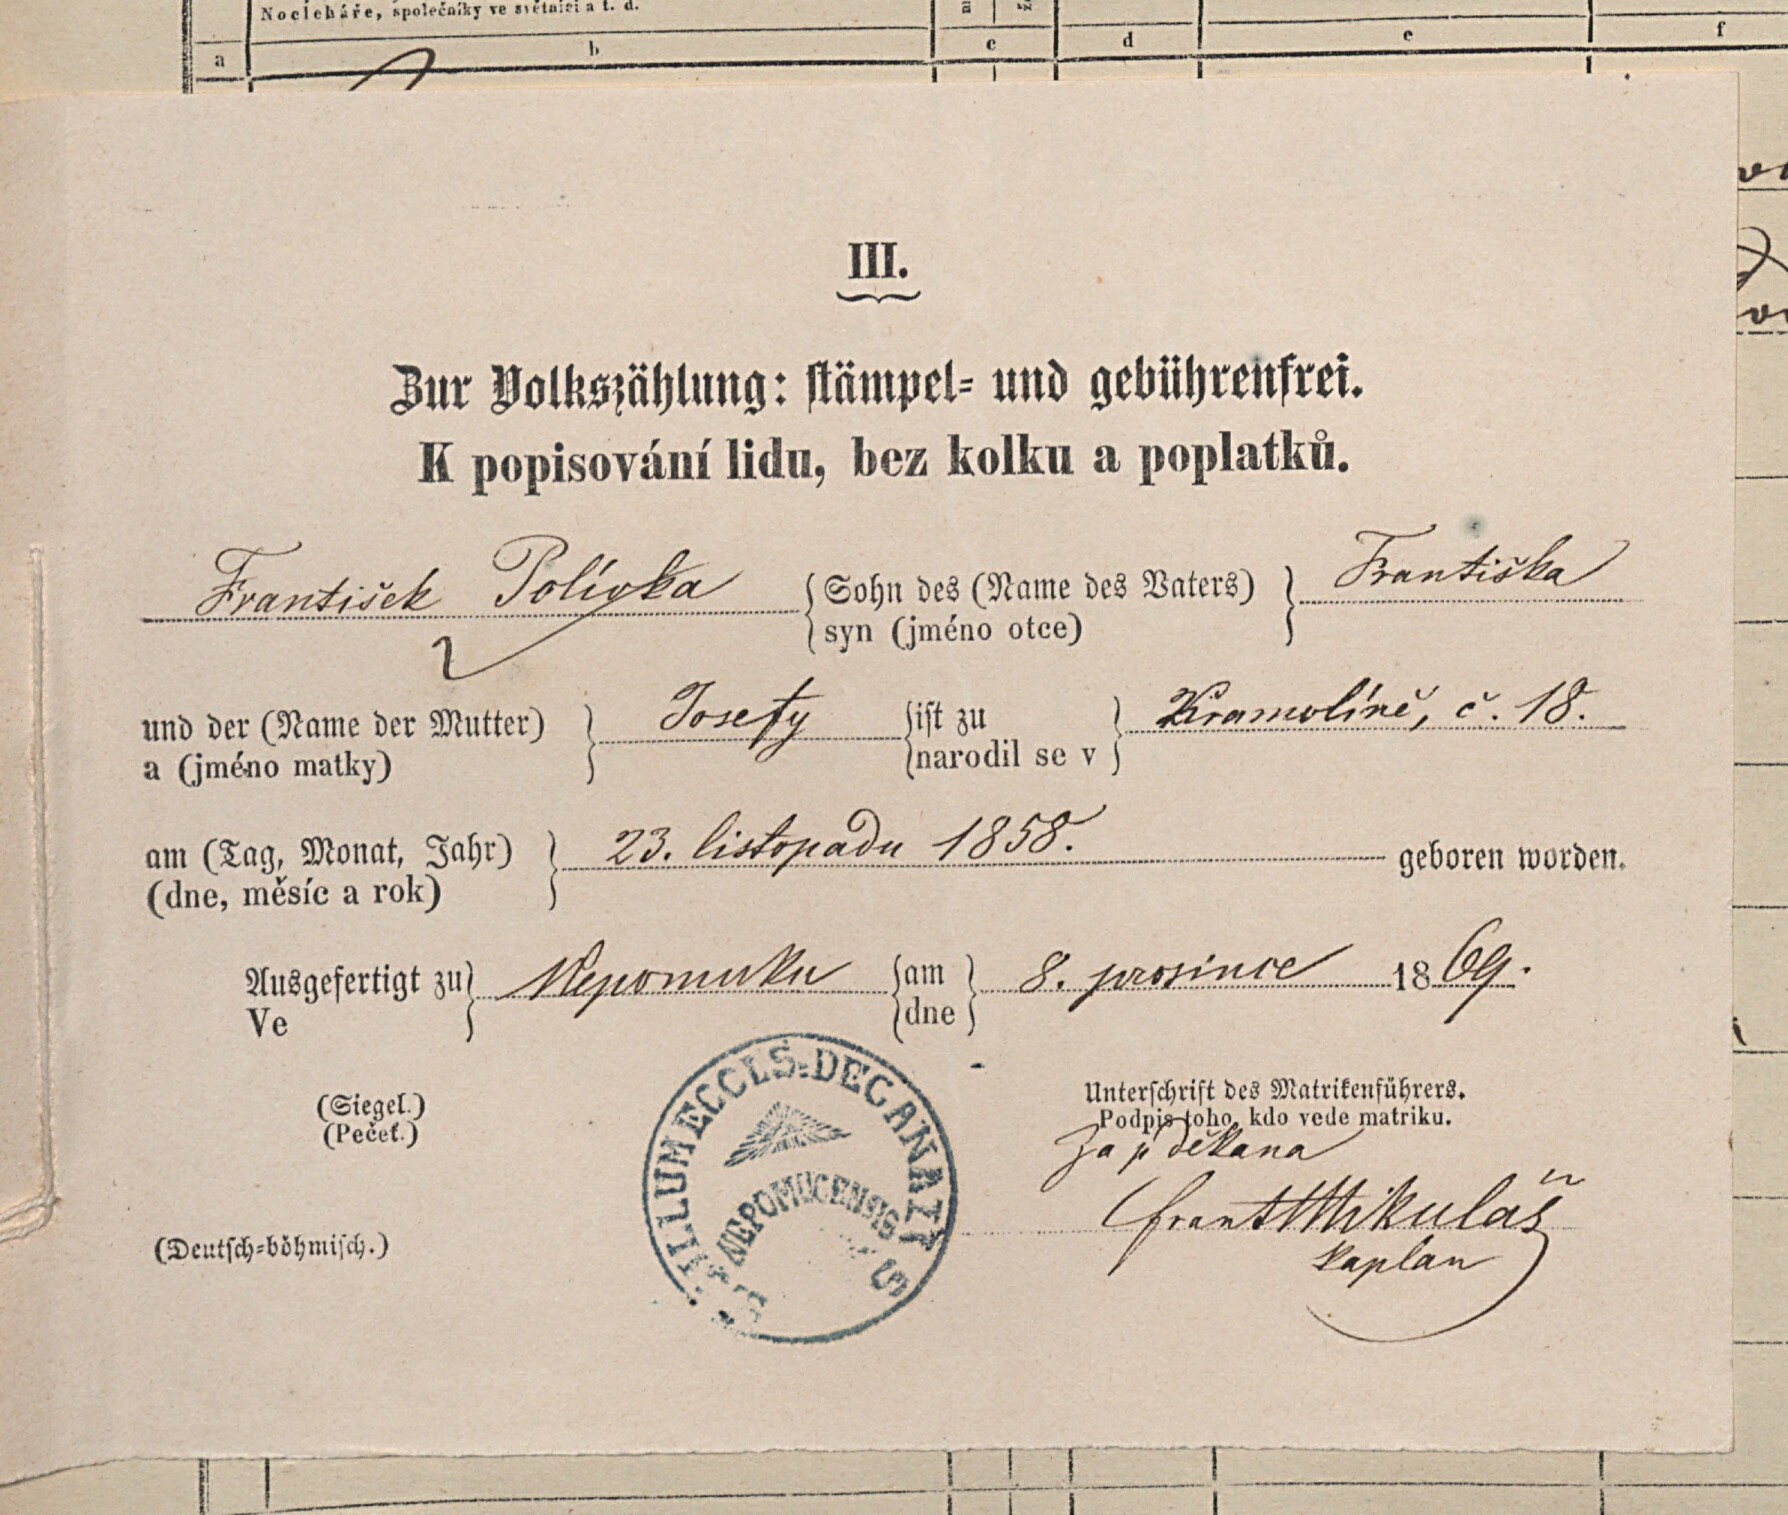 Nocleháře, společníky ve světnici a t. d.
a b c d e f
III.
Zur Volkszählung: stämpel- und gebührenfrei.
K popisování lidu, bez kolku a poplatků.
František Polívka { Sohn des (Name des Vaters) } Františka
syn (jméno otce)
und der (Name der Mutter) } Josefy { ist zu } Kramolíně, č. 18.
a (jméno matky) narodil se v
am (Tag, Monat, Jahr) } 23. listopadu 1858. geboren worden.
(dne, měsíc a rok)
Ausgefertigt zu } Nepomuku { am } 8. prosince 1869.
Ve dne
(Siegel.)
(Pečeť.)
SIGILLUM ECCLS: DECANALIS
NEPOMUCENSIS
Unterschrift des Matrikenführers.
Podpis toho, kdo vede matriku.
Za p děkana
Frant Mikuláš
kaplan
(Deutsch-böhmisch.)